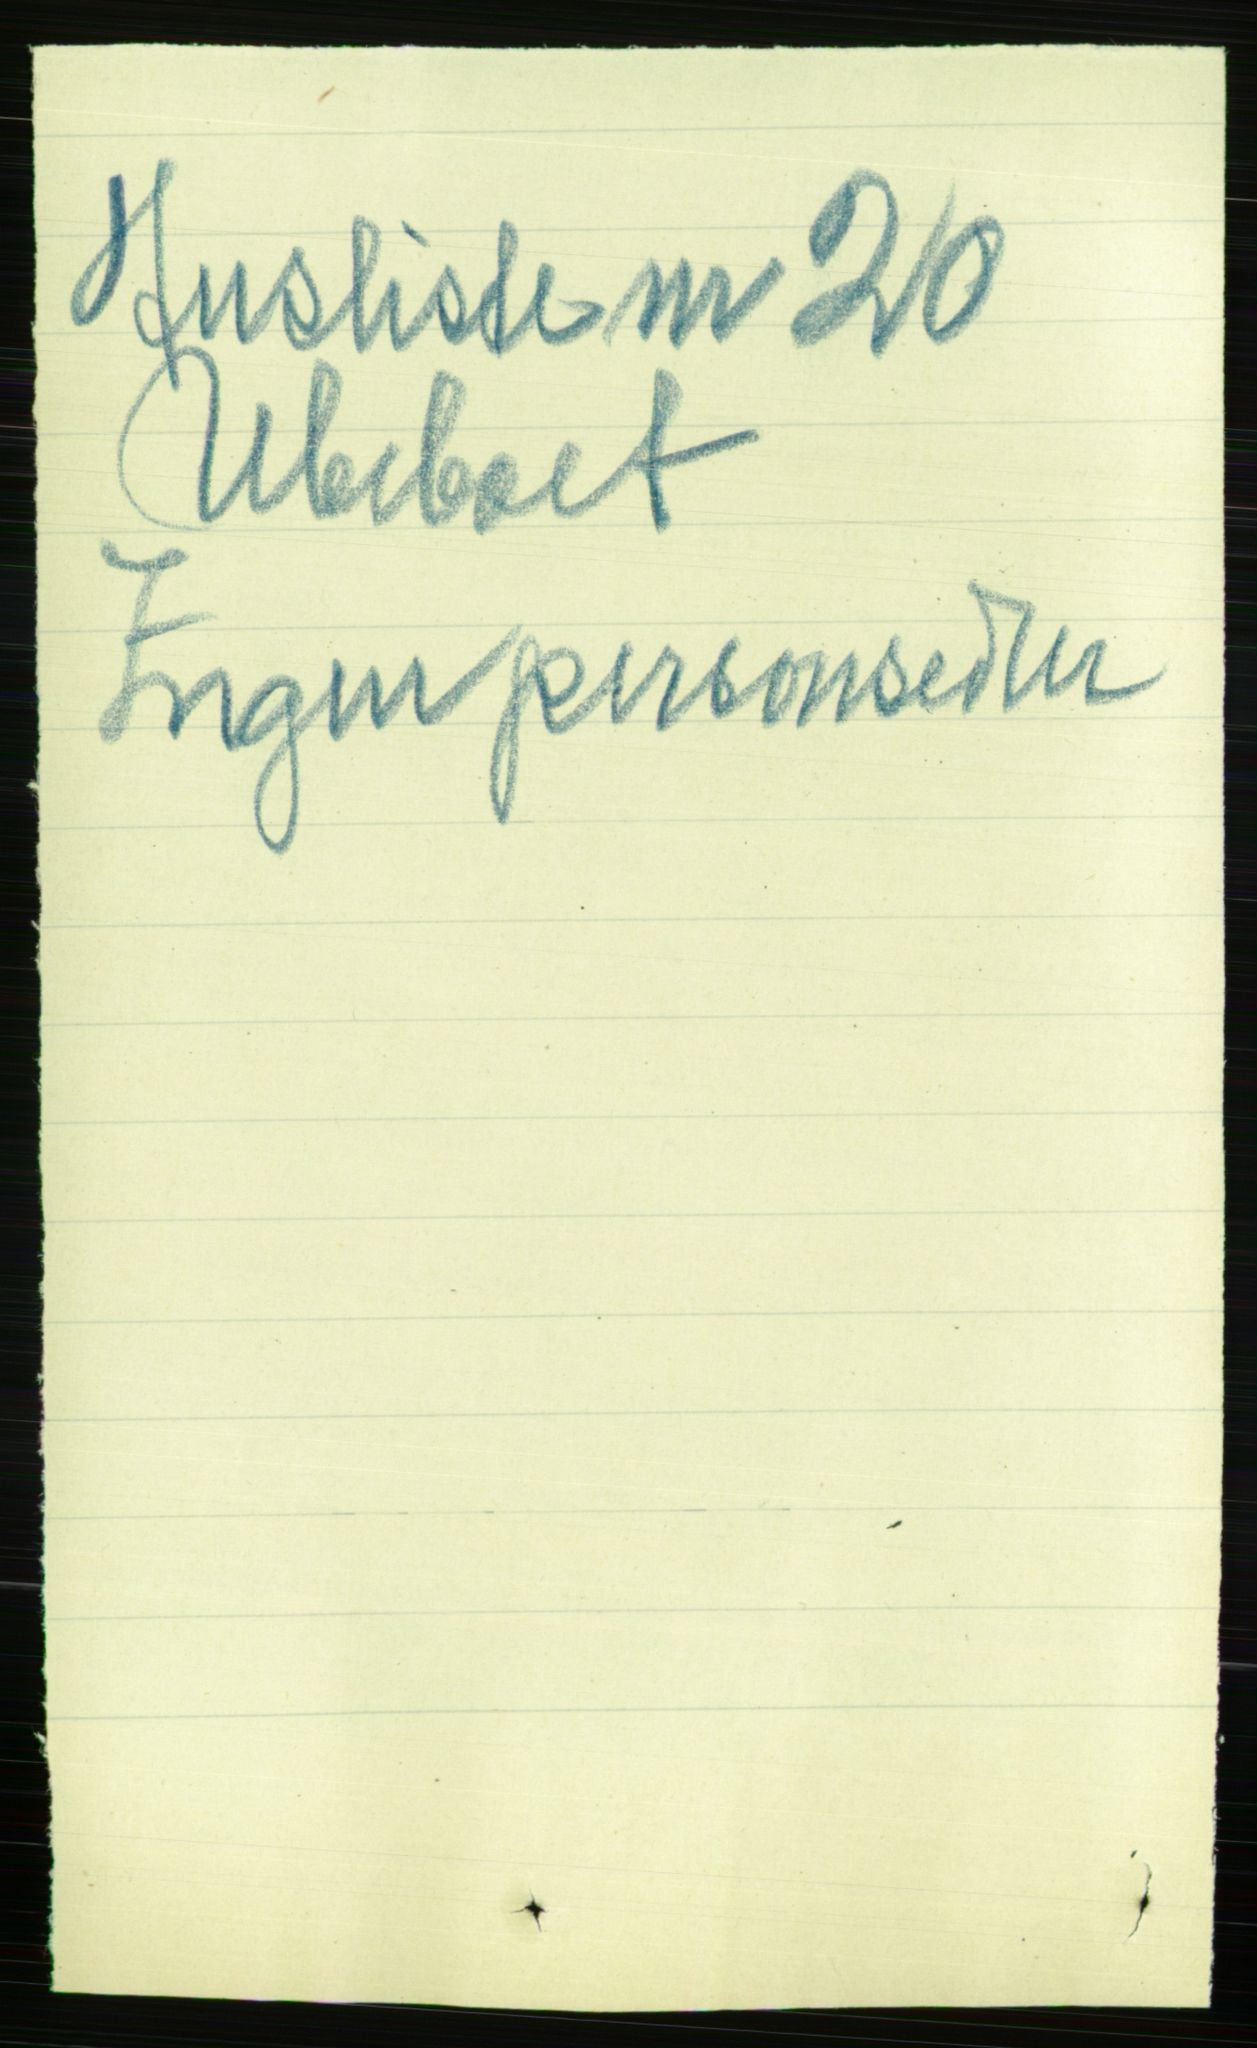 Husliste nr 20
Ubeboet
Ingen personsedler